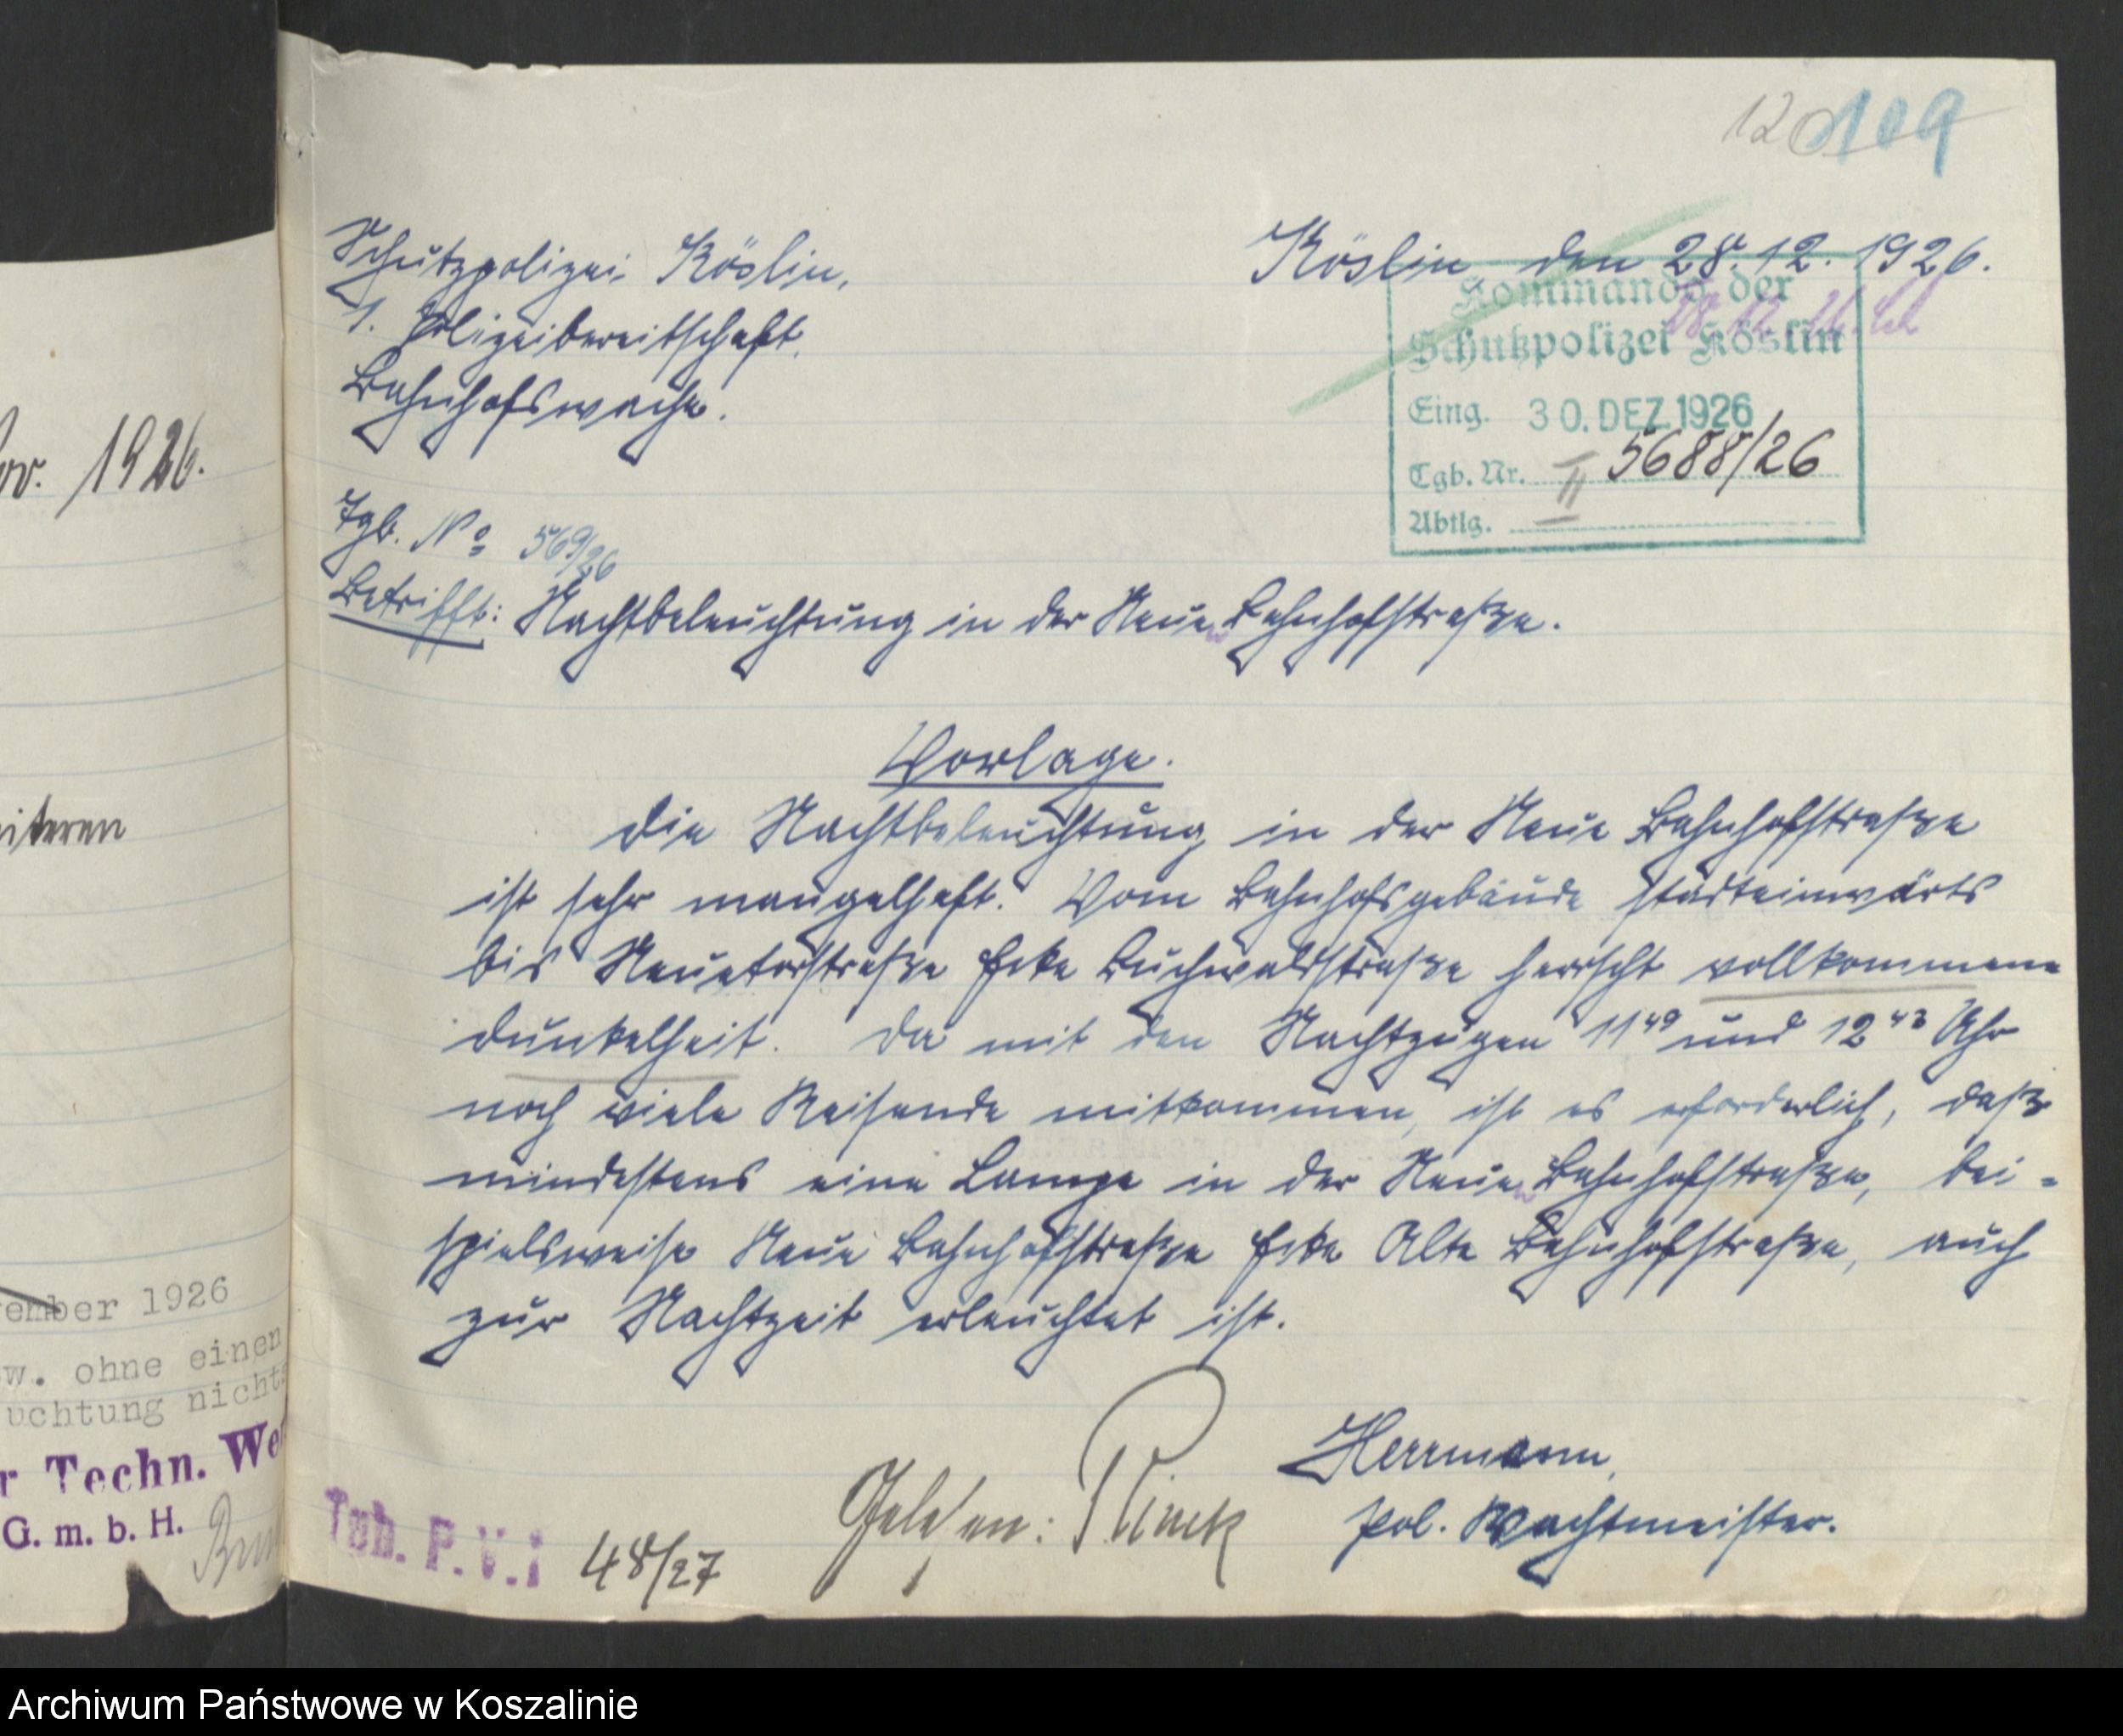 120 109
Schutzpolizei Köslin.
1. Polizeibereitschaft.
Bahnhofswache.
Köslin den 28.12.1926.
Kommando der
Schutzpolizei Köslin
Eing. 30. DEZ. 1926
Tgb. Nr. II 5688/26
Abtlg.
Tgb. No 569/26
Betrifft: Nachtbeleuchtung in der Neue Bahnhofstraße.
Vorlage.
Die Nachtbeleuchtung in der Neue Bahnhofstraße
ist sehr mangelhaft. Vom Bahnhofsgebäude städteinwärts
bis Neuetorstraße Ecke Buchwaldstraße herrscht vollkommene
Dunkelheit. Da mit den Nachtzügen 11 49 und 12 43 Uhr
noch viele Reisende mitkommen, ist es erforderlich, daß
mindestens eine Lampe in der Neue Bahnhofstraße, bei=
spielsweise Neue Bahnhofstraße Ecke Alte Bahnhofstraße, auch
zur Nachtzeit erleuchtet ist.
Herrmann,
Pol. Wachtmeister.
Gelesen:
Tgb. P.V.I 48/27
ov. 1926.
iteren
ember 1926
w. ohne einen
uchtung nichts
r Techn. We
G. m. b. H.
Archiwum Państwowe w Koszalinie